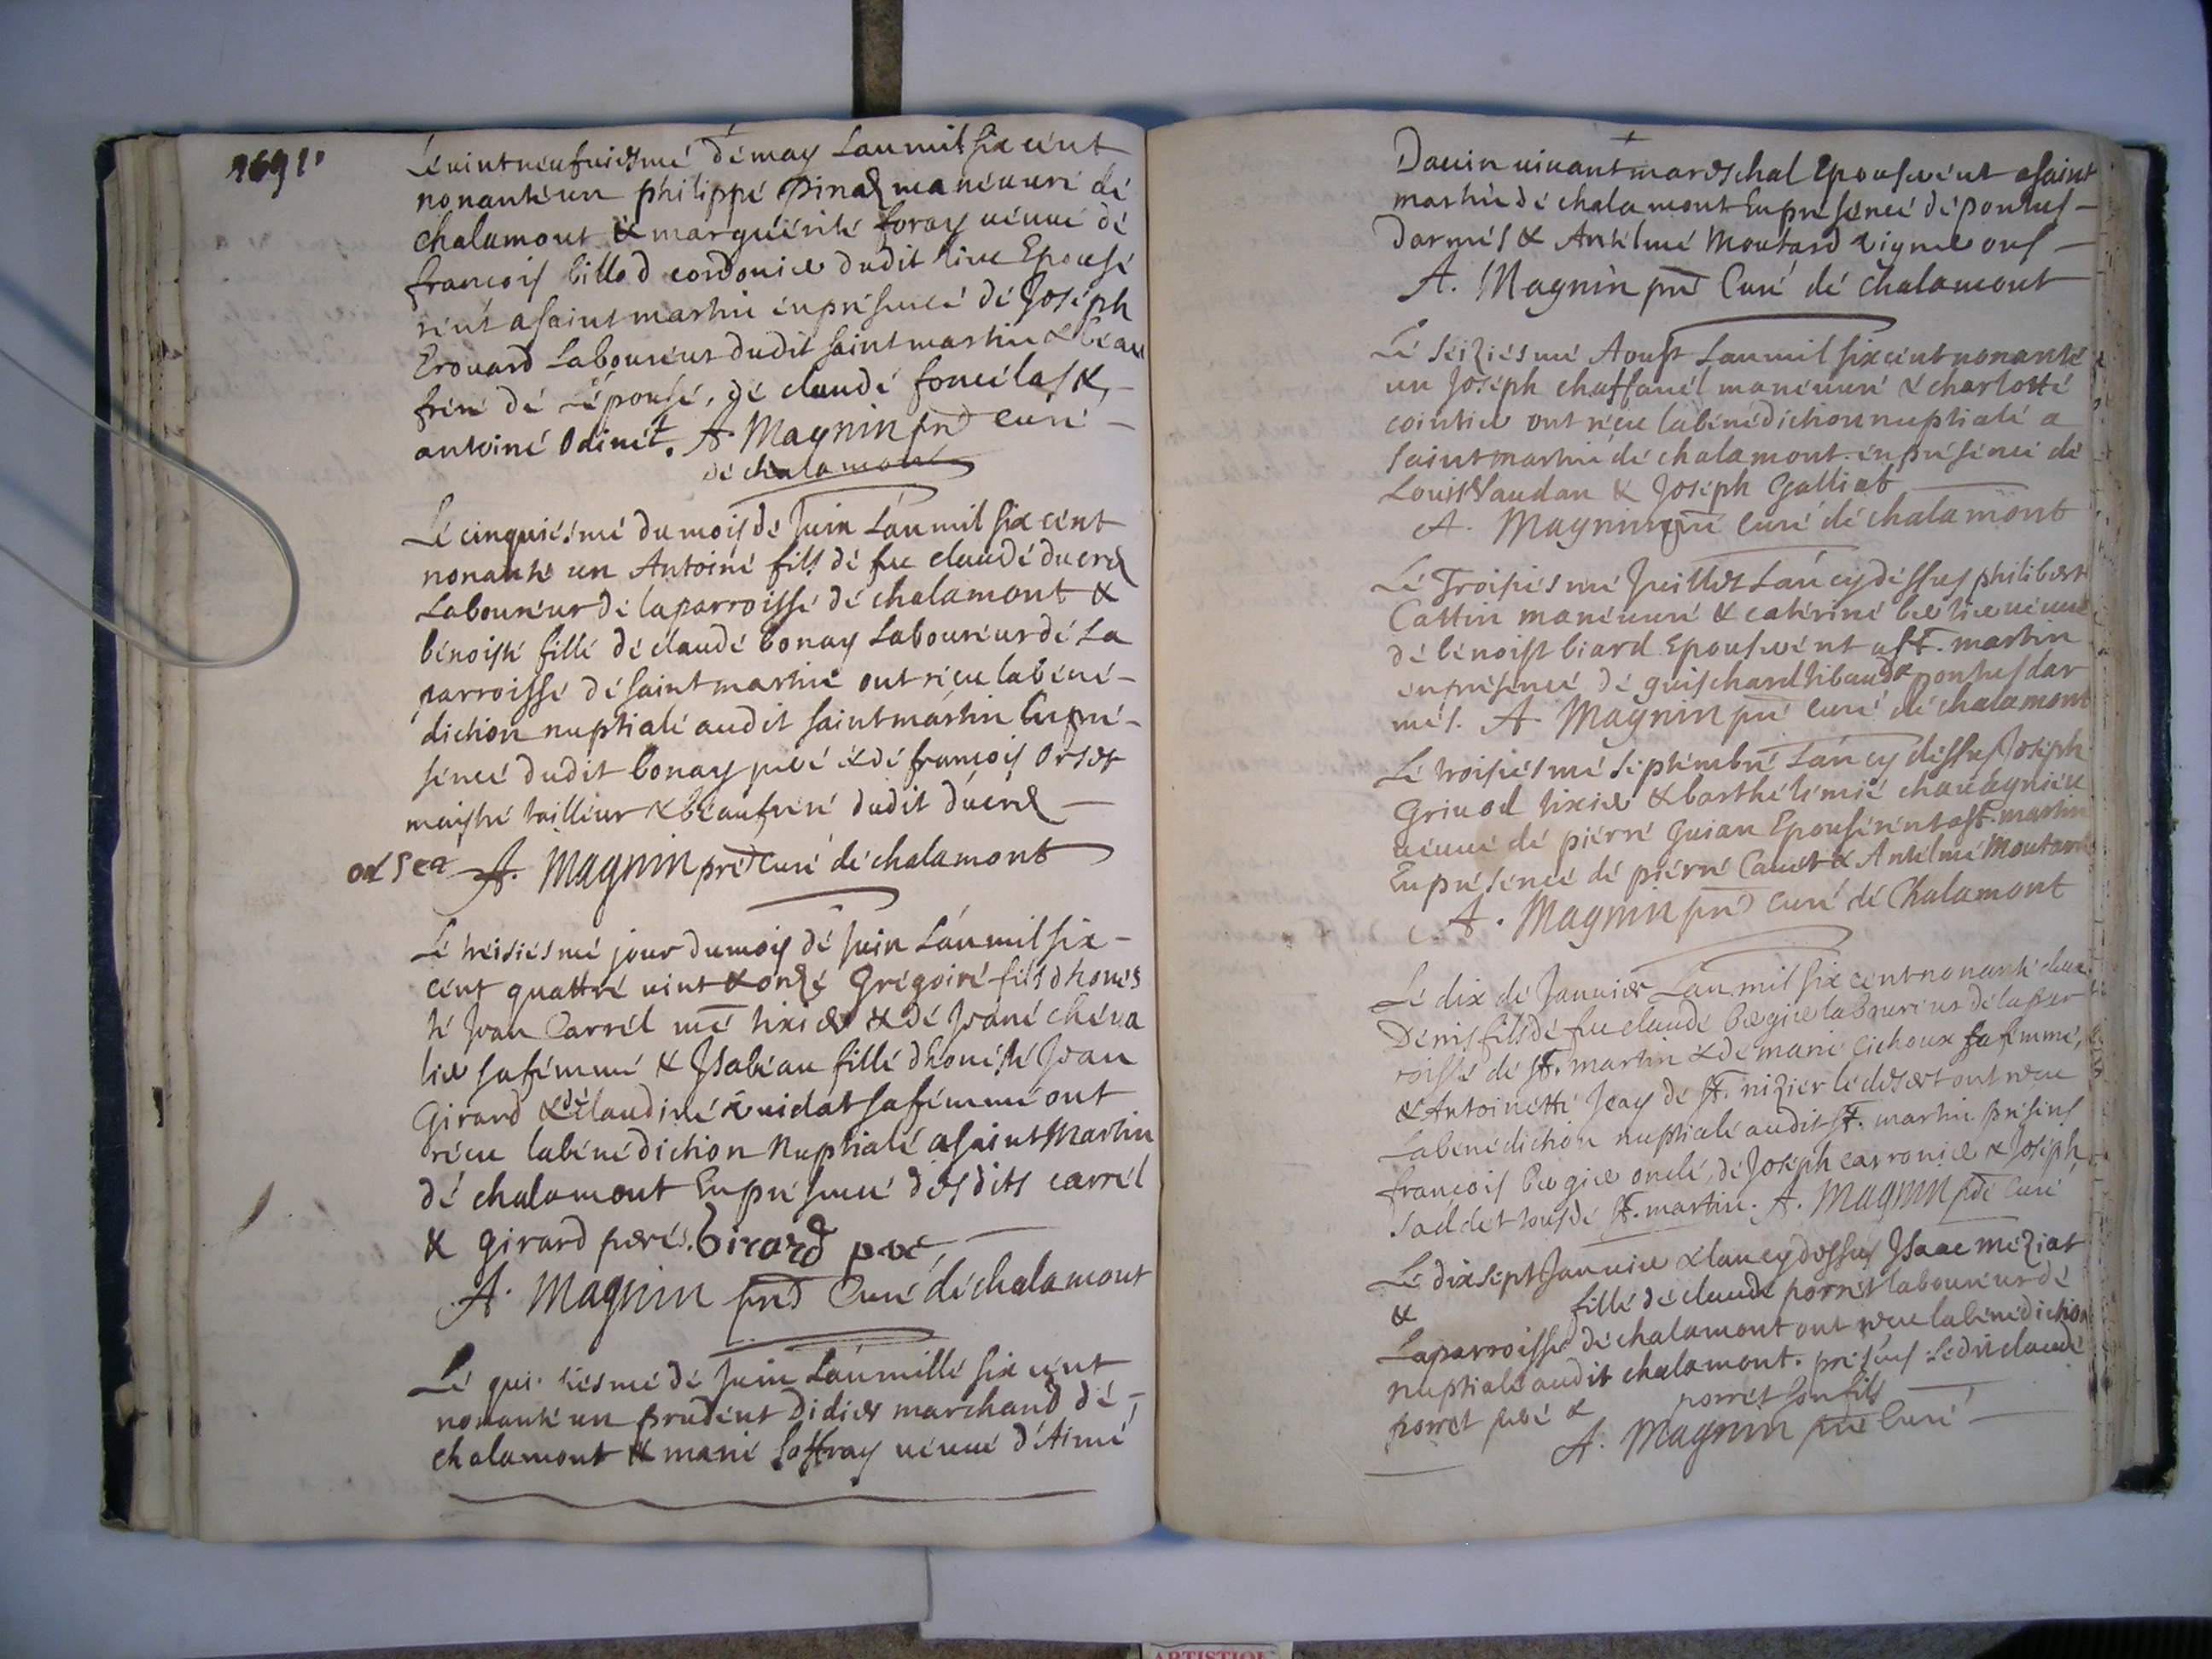 1691
Le vint neufviesme de may Lan mil six cent
nonante un philippe pinaz manevure de
chalamont & marguerite foray veuve de
francois billod cordonier dudit lieu Epouse
rent a saint martin en presence de Joseph
Erouard Laboureur dudit saint martin & beau
frere de Lepouse, de claude foncelas &
antoine Odinet. A. Magnin pre curé
de chalamont
Le cinquiesme du mois de Juin Lan mil six cent
nonante un Antoine fils de feu claude ducrez
Laboureur de la parroisse de chalamont &
benoiste fille de claude bonay Laboureur de La
parroisse de saint martin ont receu la bene-
diction nuptiale audit saint martin En pre-
sence dudit bonay pere & de francois Orset
maistre tailleur & beaufrere dudit ducrez
orset A. Magnin pre Curé de chalamont
Le treisiesme jour du mois de Juin Lan mil six-
cent quattre vint & onze Gregoire fils dhones
te Jean Carrel me tixier & de Jeane cheva
lier sa femme & Isabeau fille dhoneste Jean
Girard & de claudine vidat sa femme ont
receu la benediction Nuptiale a saint Martin
de chalamont En presence desdits carrel
& girard peres. Girard pere
A. Magnin pre Curé de chalamont
Le qui. siesme de Juin Lan mille six cent
nonante un prudent Didier marchand de
chalamont & marie Joffray veuve d'Aimé
Dauin vivant mareschal Epouserent a saint
martin de chalamont En presence de pontus
Darmes & Antelme Moutard vignerons
A. Magnin pre Curé de chalamont
Le seiziesme Aoust Lan mil six cent nonante
un Joseph chaffanel manevure & charlotte
cointier ont receu la benediction nuptiale a
saint martin de chalamont en presence de
Louis Vaudan & Joseph Galliat
A. Magnin pre curé de chalamont
Le Troisiesme Juillet Lan cy dessus philibert
Cattin manevure & caterine bertier veuve
de benoist biard Epouserent a St. martin
en presence de guischard tibaud & pontus dar
mes. A. Magnin pre Curé de chalamont
Le troisiesme septembre Lan cy dessus Joseph
Grivod tixier & barthelemie chavagnieu
veuve de pierre guian Epouserent a St. martin
En presence de pierre Canet & Antelme Moutard
A. Magnin pre curé de Chalamont
Le dix de Janvier Lan mil six cent nonante deux
Denis fils de feu claude bergier laboureur de la par
roisse de St. martin & de marie cichoux sa femme,
& Antoinette Jeay de St. nizier le desert ont receu
La benediction nuptiale audit St. martin. presens
francois bergier oncle, de Joseph carronier & Joseph
Saddet tous de St. martin. A. Magnin pre Curé
Le dix sept Janvier & lan cy dessus Isaac meziat
& fille de claude porret laboureur de
La parroisse de chalamont ont receu la benediction
nuptiale audit chalamont. presens ledit claude
porret pere & porret son fils
A. Magnin pre Curé
ARTISTIQUE